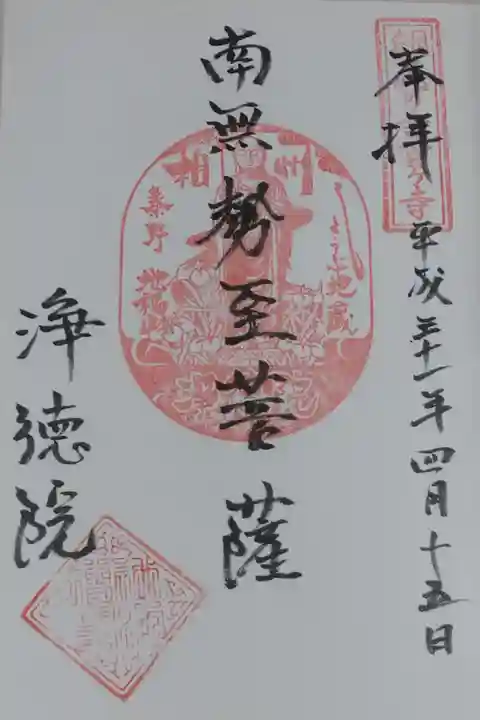 奉拝
平成三十一年四月十五日
南無勢至菩薩
相州
秦野
浄徳院